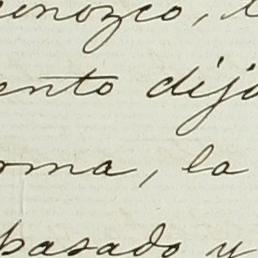 onozco, l
ento dijo
orma, la
pasado y